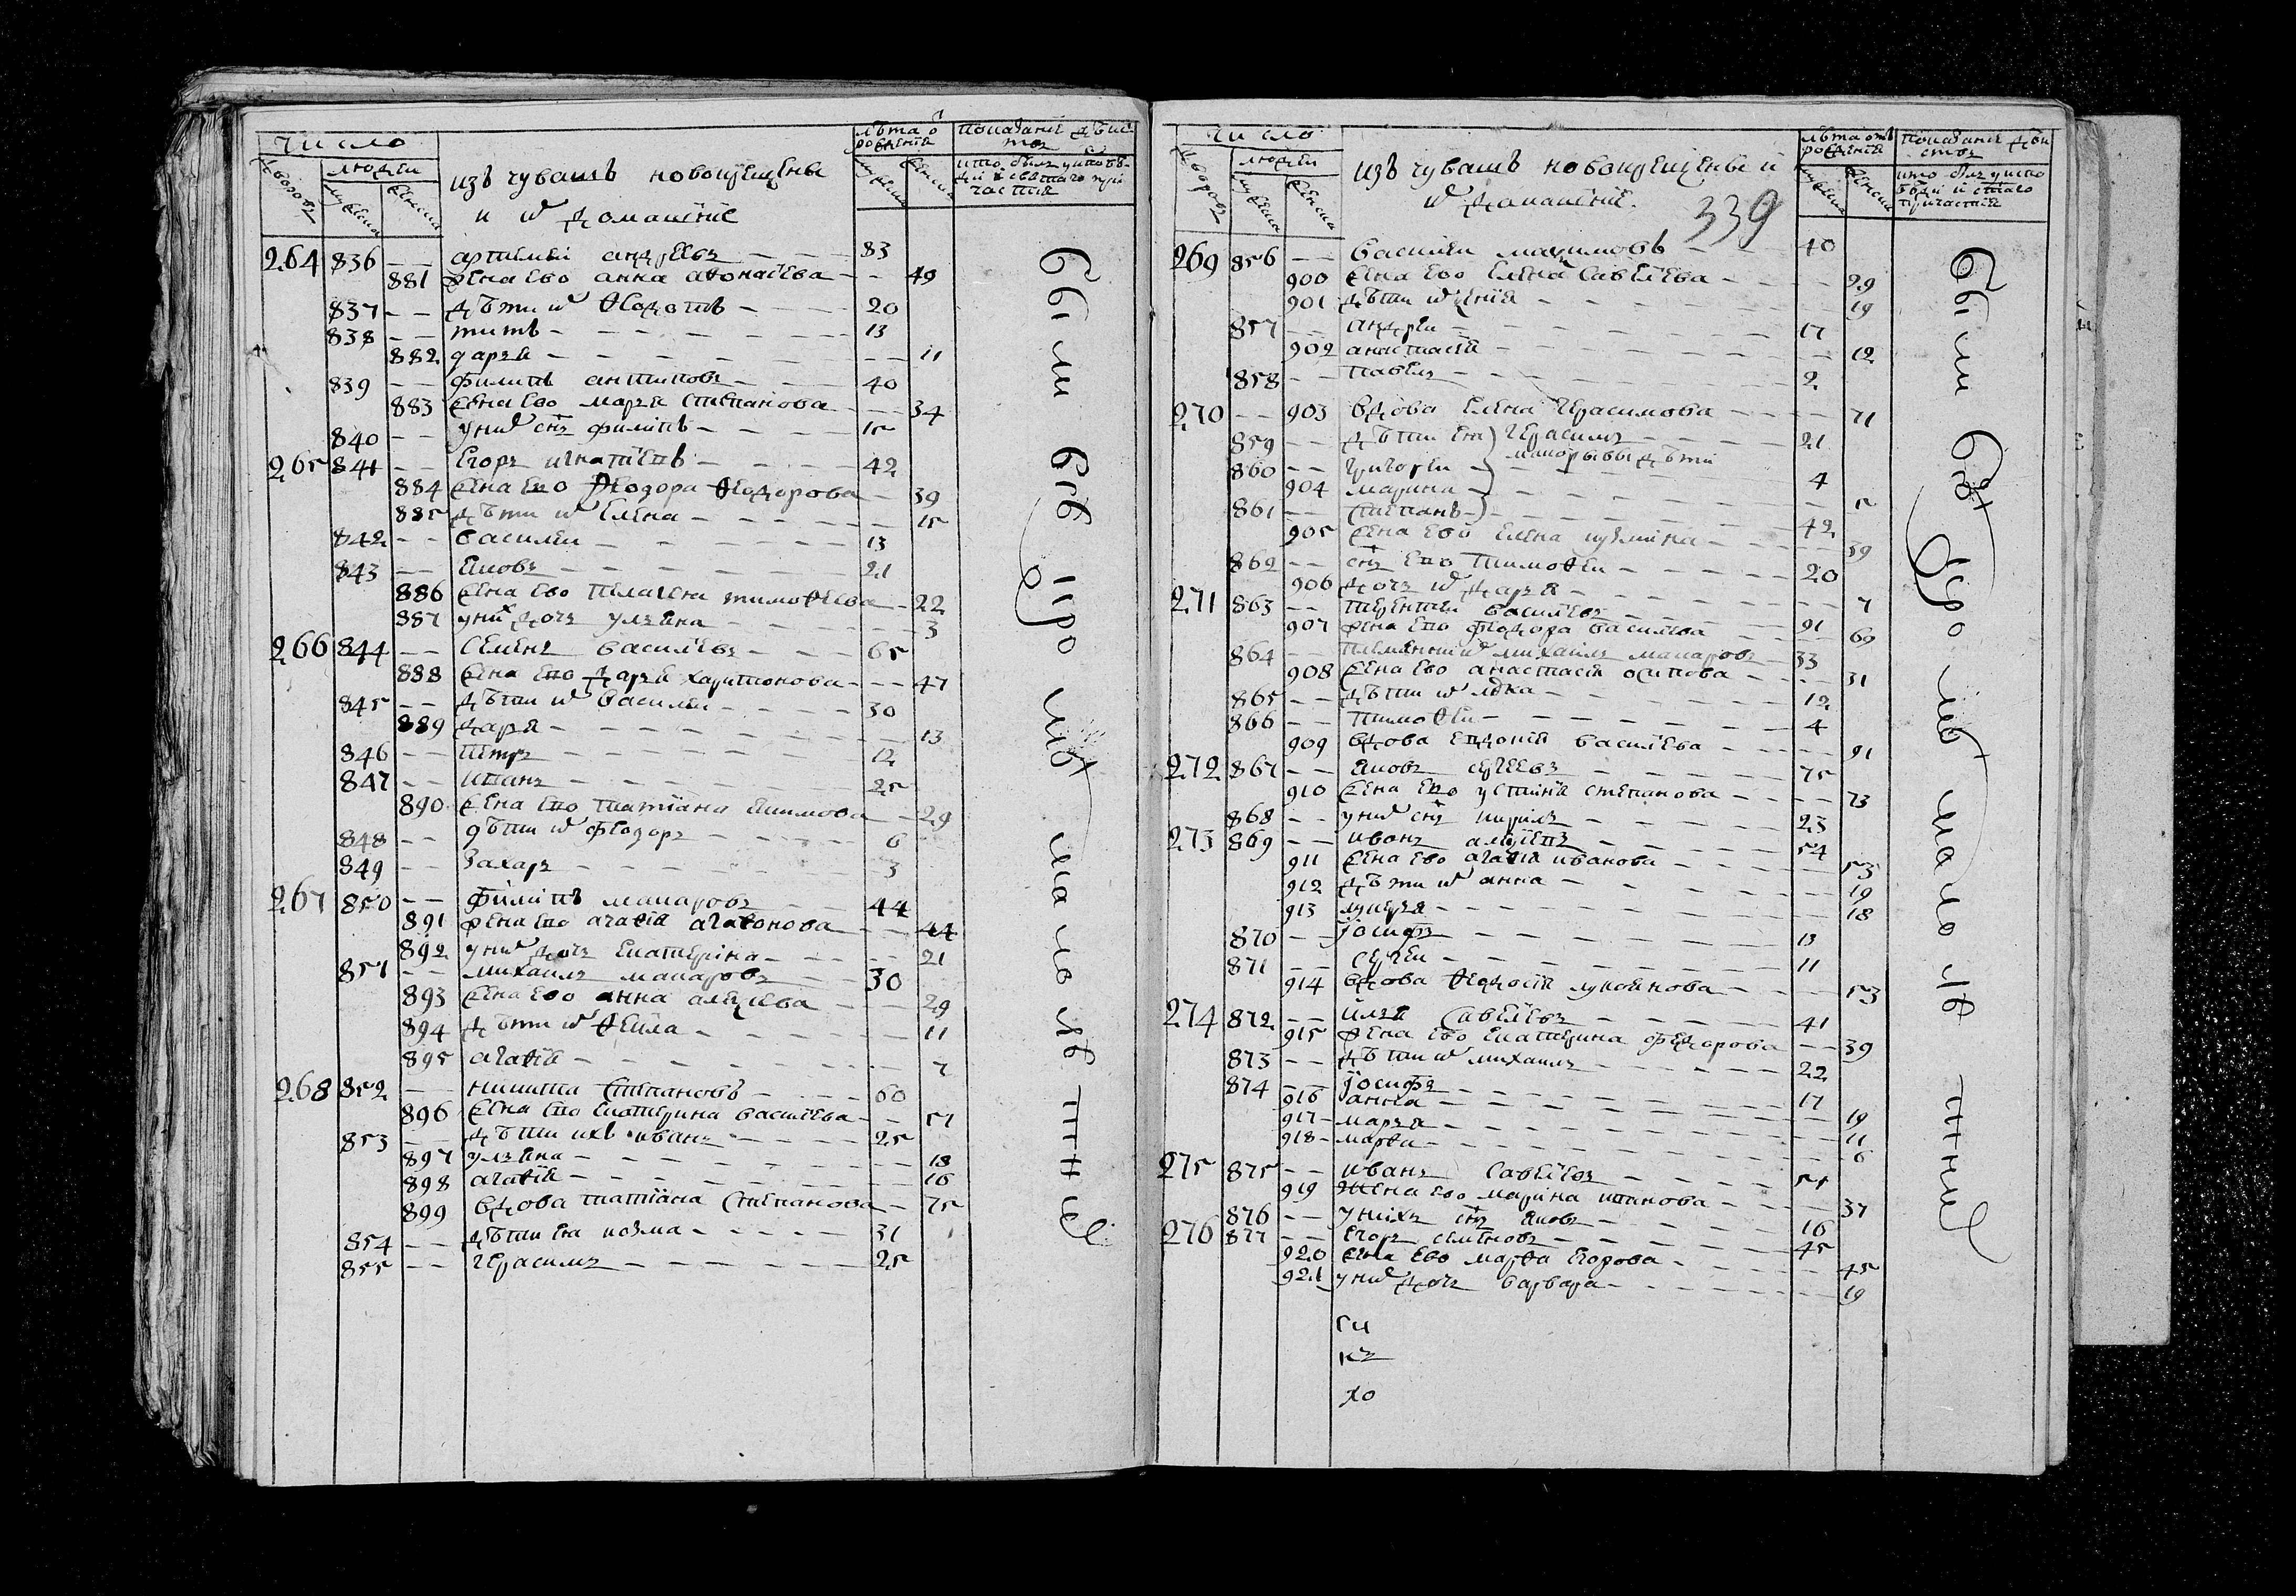 число
дворовъ
людей
мужеска
женска
изъ чувашъ новокрещены
и их домашніе
лѣта о
рожденія
мужеска
женска
показаніе дѣис
твъ
кто былъ у исповѣ
ди и святаго при
частія
264 836 — артемеи андреевъ 83
881 жена ево анна аѳонасева 49
837 — дѣти их Ѳедотъ 20
838 — титъ 13
882 дарья 11
839 — филипъ антиповъ 40
883 жена ево марья степанова 34
840 — у них снъ филипъ 15
265 841 — егоръ игнатіевъ 42
884 жена ево Ѳеодора Ѳеодорова 39
885 дѣти их елена 15
842 — василеи 13
843 — яковъ 21
886 жена ево пелагея тимоѳеева 22
887 у них дочъ ульяна 3
266 844 — семенъ василевъ 65
888 жена ево дарья харитонова 47
845 — дѣти их василеи 30
889 дарья 13
846 — петръ 12
847 — иванъ 25
890 жена ево татіана якимова 29
848 — дѣти их феодоръ 6
849 — захаръ 3
267 850 — филипъ макаровъ 44
891 жена ево агаѳія агаѳонова 44
892 у них дочъ екатерина 21
851 — михаилъ макаровъ 30
893 жена ево анна алексеева 29
894 дѣти их Ѳекла 11
895 агаѳія 7
268 852 — никита степановъ 60
896 жена ево екатерина василева 57
853 — дѣти ихъ иванъ 25
897 ульяна 18
898 агаѳія 16
899 вдова татіана степанова 75
854 — дѣти ея козма 31
855 — герасимъ 25
были все
токмо
малолѣтніе
число
дворовъ
людеи
мужеска
женска
изъ чувашъ новокрещеные и
их домашніе.
339
лѣта отъ
рожденія
мужеска
женска
показаніе дѣи
ствъ
кто былъ у испо
вѣди и стаго
причастія
269 856 — василеи максимовъ 40
900 жена ево елена савелева 29
901 дѣти их 19
857 — андреи 17
902 анастасія 12
858 — павелъ 2
270 — 903 вдова елена герасимова 71
859 — дѣти ея герасимъ 21
860 — григореи 4
904 марина 5
861 — степанъ 42
905 жена ево елена кузмина 39
862 — снъ ево тимоѳеи 20
906 дочъ их дарья 7
271 863 — терентеи василевъ 91
907 жена ево феодора василева 69
864 — племянник их михаилъ макаровъ 33
908 жена ево анастасія осипова 31
865 — дѣти их лука 12
866 — тимоѳеи 4
909 вдова евдокія василева 91
272 867 — яковъ сергеевъ 75
910 жена ево устинія степанова 73
868 — у них снъ кирилъ 23
273 869 — иванъ алексеевъ 54
911 жена ево агаѳія иванова 53
912 дѣти их анна 19
913 лукерья 18
870 — іосифъ 13
871 — сергеи 11
914 вдова Ѳедосія лукоянова 53
274 872 — илья савелевъ 41
915 жена ево екатерина федорова 39
873 — дѣти их михаилъ 22
874 — іосифъ 17
916 анна 19
917 марья 11
918 марѳа 6
275 875 — иванъ савелевъ 51
919 жена ево марина иванова 37
876 — у нихъ снъ яковъ 16
276 877 — егоръ семеновъ 45
920 жена ево марѳа егорова 45
921 у них дочъ варвара 19
си
къ
хо
были все
кромѣ
малолѣтних